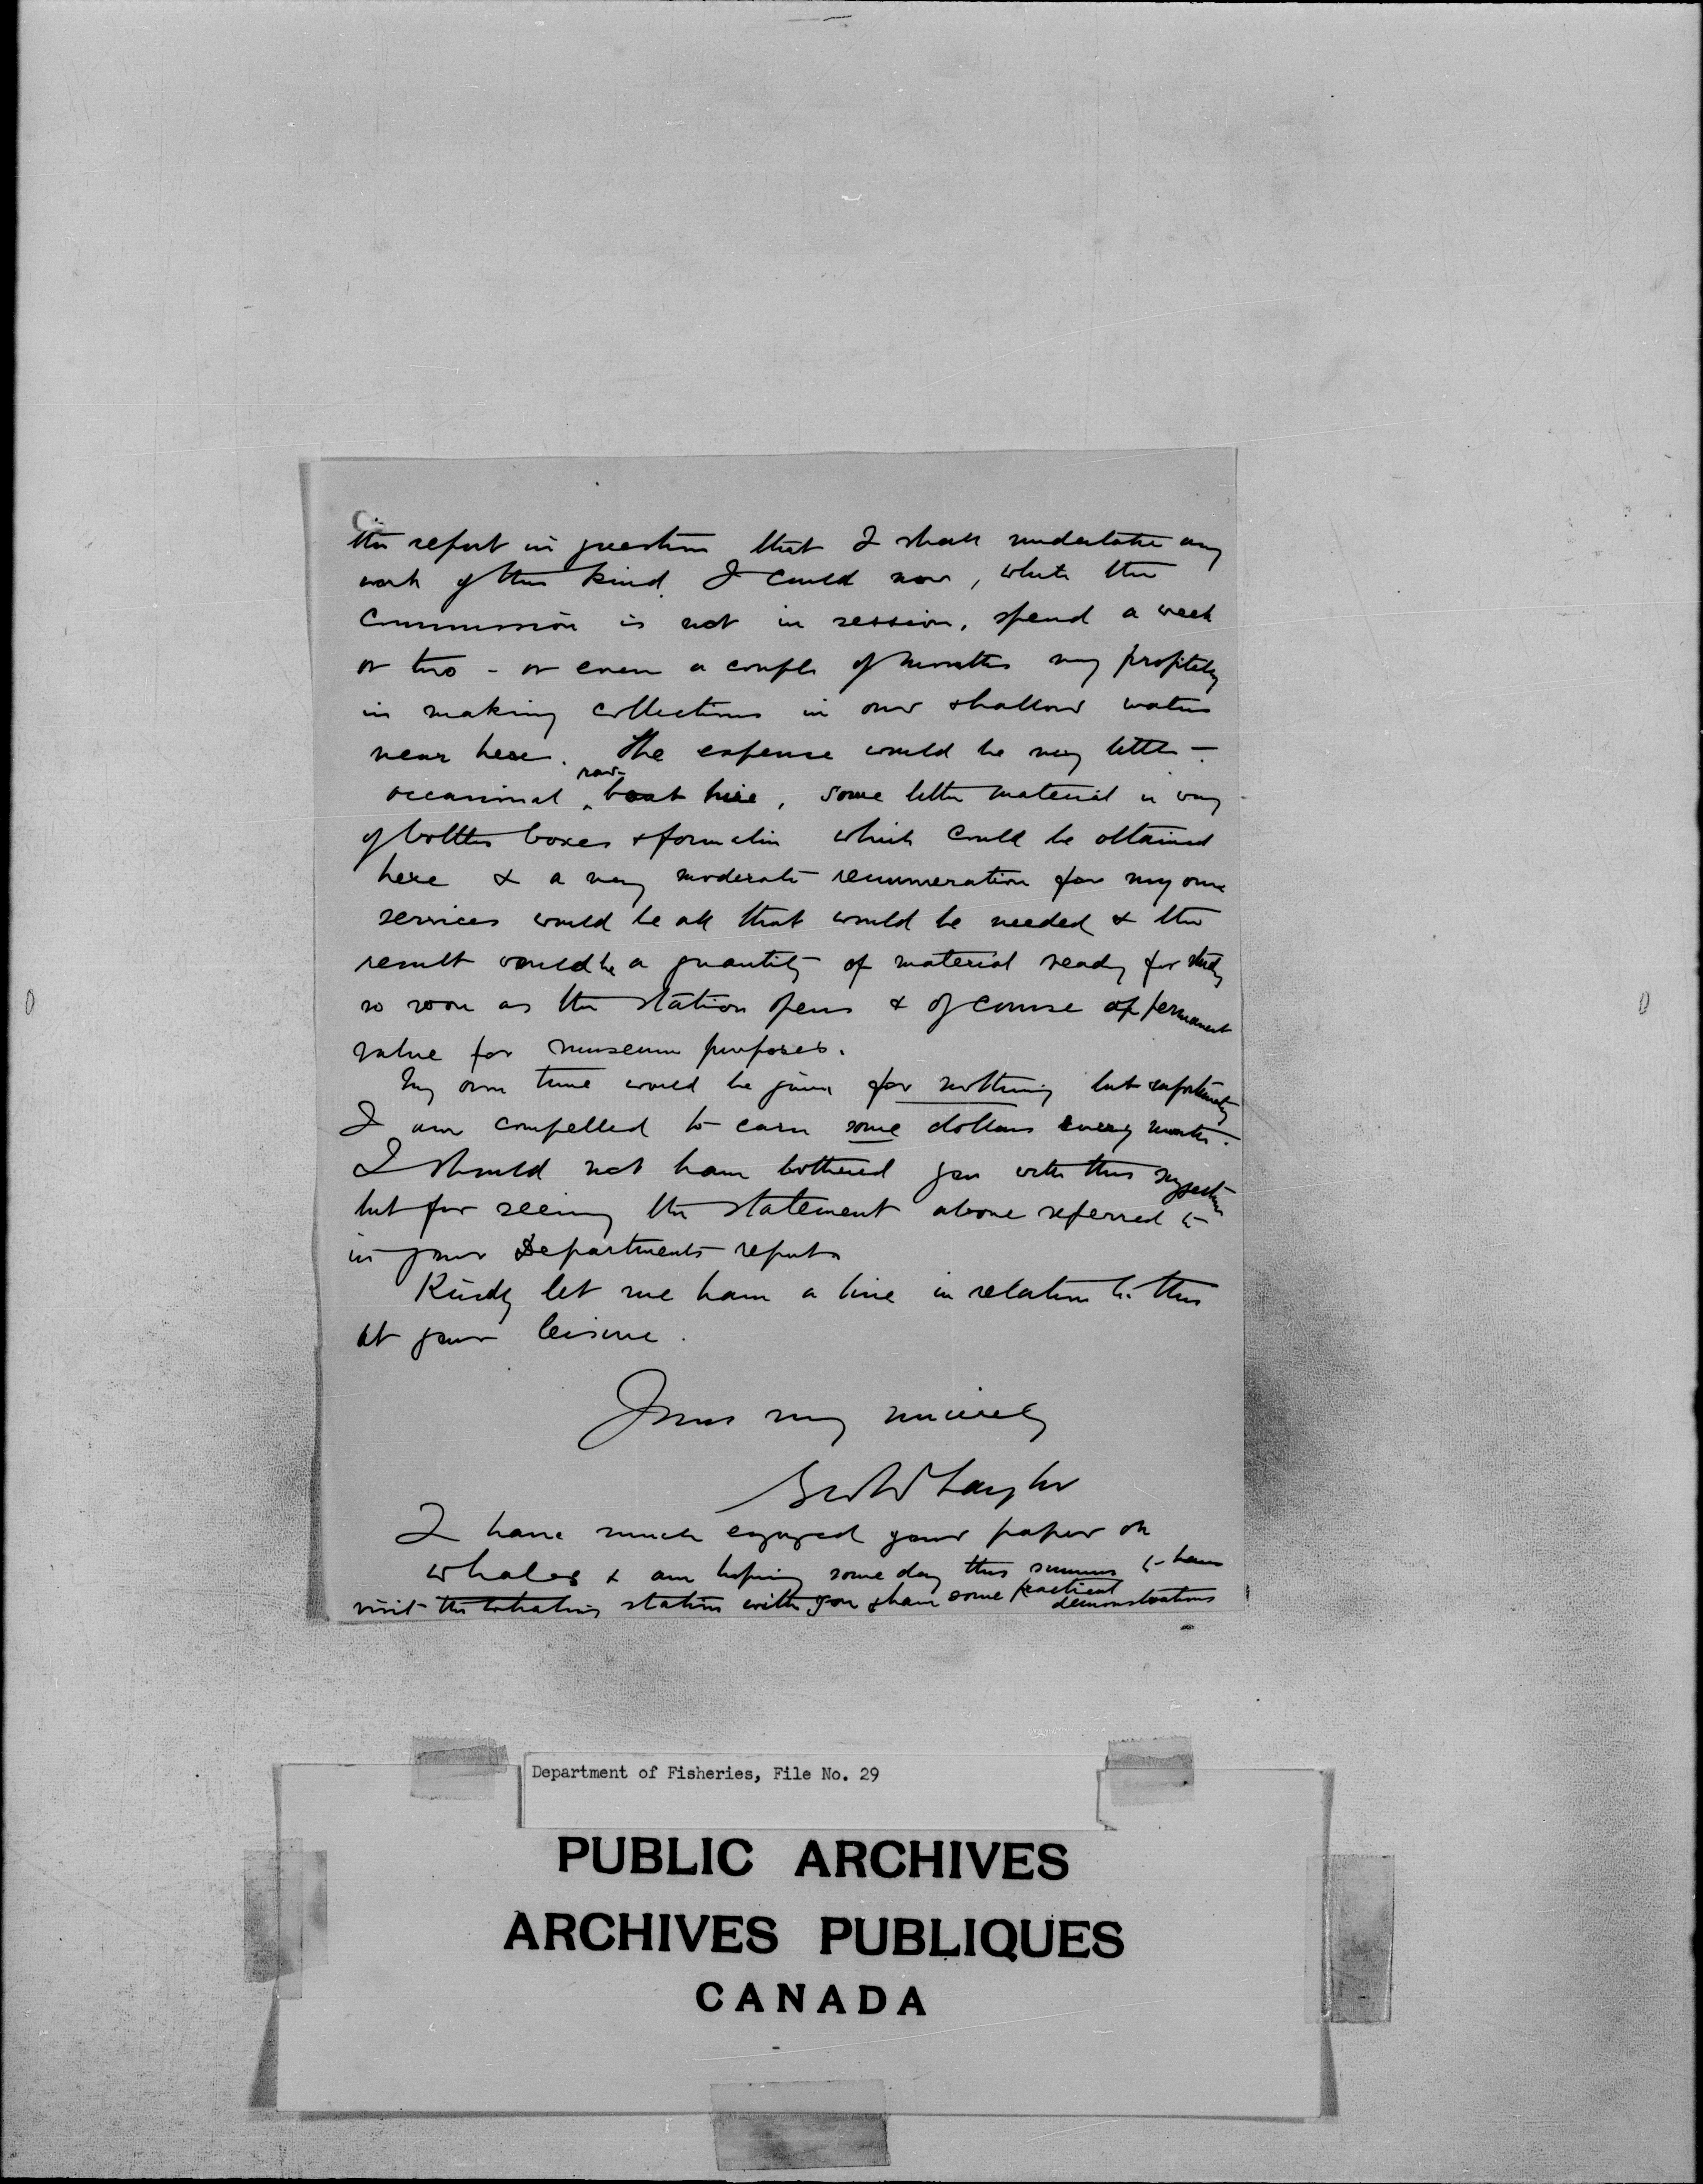 the report in question that I shall undertake any
work of this kind. I could now, while the
Commission is not in session, spend a week
or two - or even a couple of months very profitably
in making collections in our shallow waters
near here. The expense would be very little -
occasional row-boat hire, some little material in way
of bottles boxes & formalin which could be obtained
here & a very moderate remuneration for my own
services would be all that would be needed & the
result would be a quantity of material ready for study
so soon as the station opens & of course of permanent
value for museum purposes.
My own time would be given for nothing but unfortunately
I am compelled to earn some dollars every month.
I should not have bothered you with this suggestion
but for seeing the statement above referred to
in your Departments report
Kindly let me have a line in relation to this
at your leisure.
Yours very sincerely
Geo W Taylor
I have much enjoyed your paper on
whales & am hoping some day this summer to have
visit the whaling station with you & have some practical
demonstrations
Department of Fisheries, File No. 29
PUBLIC ARCHIVES
ARCHIVES PUBLIQUES
CANADA